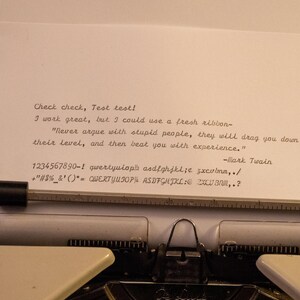 Check check, Test test!
I work great, but I could use a fresh ribbon-
"Never argue with stupid people, they will drag you down
their level, and then beat you with experience."
-Mark Twain
1234567890-! qwertyuiop½ asdfghjkl;¢ zxcvbnm,./
+"#$%_&'()*= QWERTYUIOP¼ ASDFGHJKL:@ ZXCVBNM,.?